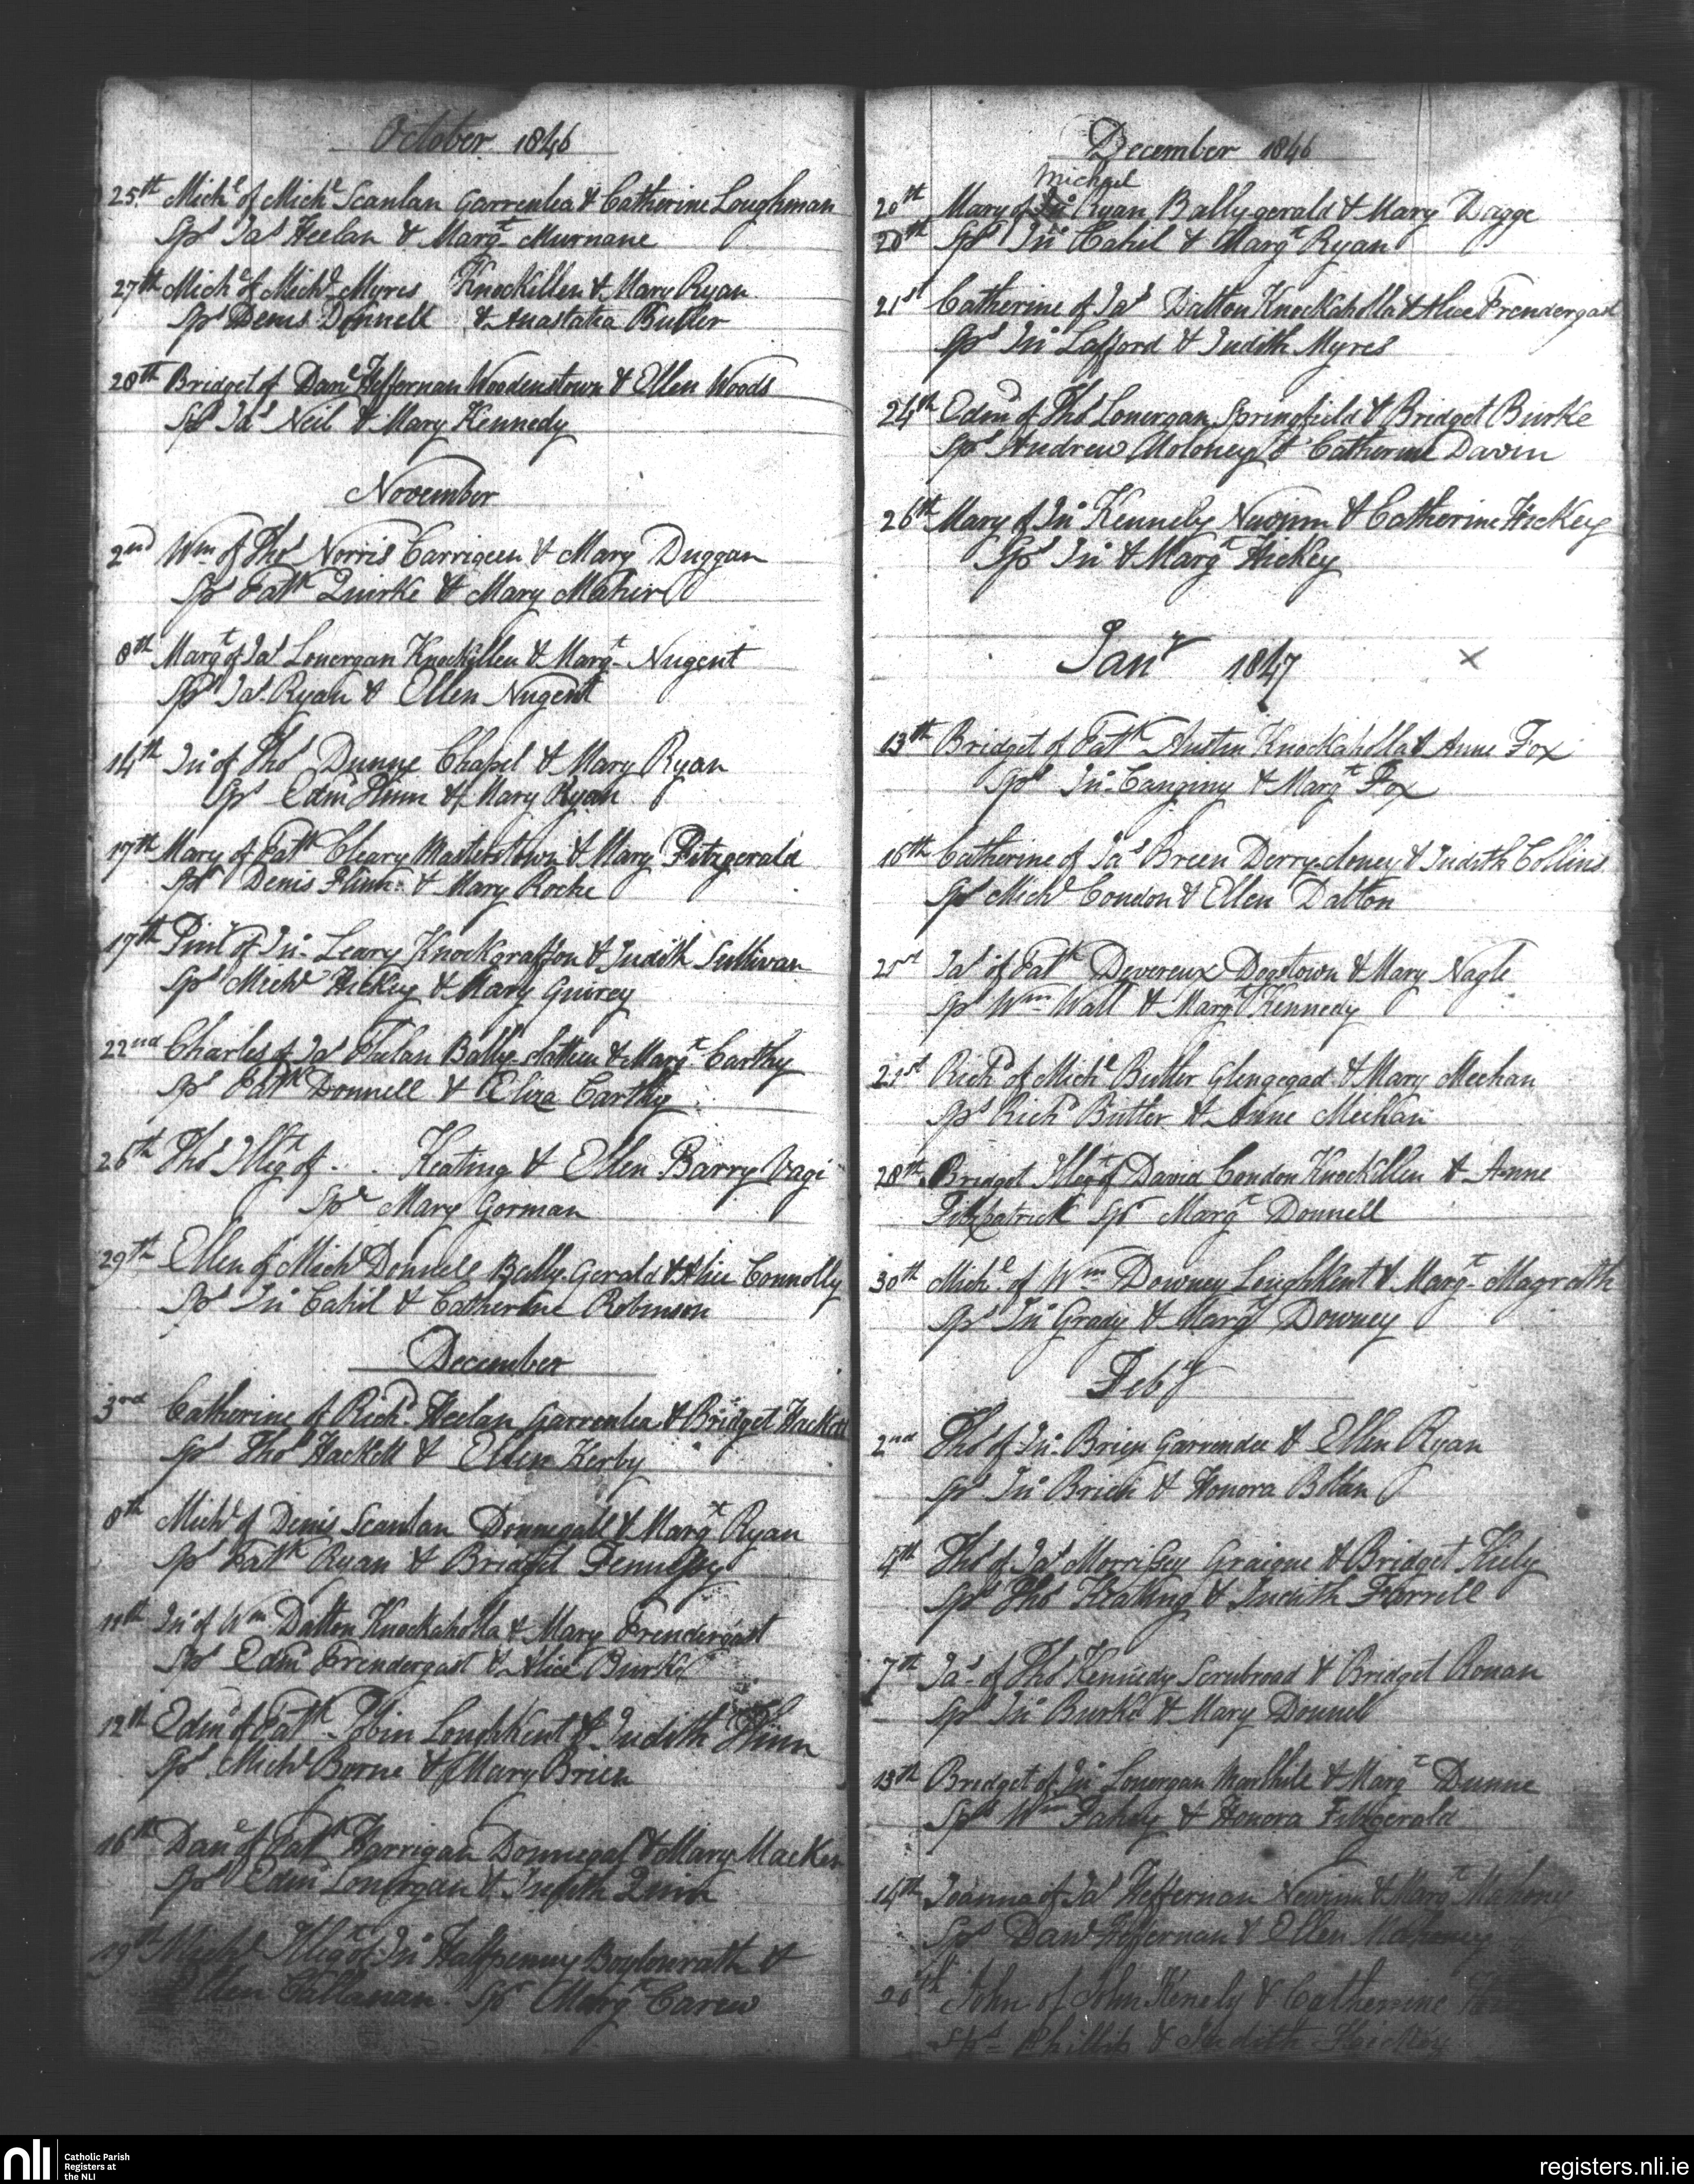 October 1846
25th Michl of Michl Scanlan Garrenlea & Catherine Loughman
Sps Jas Heelan & Margt Murnane
27th Michl of Michl Myres Knockillen & Mary Ryan
Sps Denis Donnell & Anastatia Butler
28th Bridget of Danl Heffernan Woodenstown & Ellen Woods
Sps Jas Neil & Mary Kennedy
November
2nd Wm of Thos Norris Carrigeen & Mary Duggan
Sps Patk Quirke & Mary Maher
8th Margt of Jas Lonergan Knockillen & Margt Nugent
Sps Jas Ryan & Ellen Nugent
14th Jno of Thos Dunne Chapel & Mary Ryan
Sps Edmd Flinn & Mary Ryan
17th Mary of Patk Cleary Masterstown & Mary Fitzgerald
Sps Denis Flinn & Mary Roche
17th of Jno Leary Knockgraffon & Judith Sullivan
Sps Michl Hickey & Mary Guirey
22nd Charles of Jas Phelan & Margt Carthy
Sps Patk Donnell & Eliza Carthy
26th Thos Illegt of . . Keating & Ellen Barry Vagi
Spr Mary Gorman
29th Ellen of Michl Donnell Bally-Gerald & Alice Connolly
Sps Jno Cahil & Catherine Robinson
December
3rd Catherine of Richd Heelan Garrenlea & Bridget Hackett
Sps Thos Hackett & Ellen Kerby
8th Michl of Denis Scanlan Donnegall & Margt Ryan
Sps Patk Ryan & Bridget Fennessy
11th Jno of Wm Dalton Knockaholla & Mary Prendergast
Sps Edmd Prendergast & Alice Burke
12th Edmd of Patk Tobin Loughkent & Judith Flinn
Sps Michl Borne & Mary Brien
16th Danl of Patk Harrigan Donnegal & Mary Macken
Sps Edmd Lonergan & Judith Quirk
19th Michl Illegt of Jno Halfpenny Boytonrath &
Ellen Callanan. Spr Margt Carew
December 1846
Michael
20th Mary of Jno Ryan Ballygerald & Mary Dagge
20th Sps Jno Cahil & Margt Ryan
21st Catherine of Jas Dalton Knockaholla & Alice Prendergast
Sps Jno Lafford & Judith Myres
24th Edmd of Thos Lonergan Springfield & Bridget Burke
Sps Andrew Moloney & Catherine Davin
26th Mary of Jno Kennely Newinn & Catherine Hickey
Sps Jno & Margt Hickey
Jany 1847 ×
13th Bridget of Patk Austin Knockaholla & Anne Fox
Sps Jno & Margt Fox
16th Catherine of Jas Breen Derry-cloney & Judith Collins
Sps Michl Condon & Ellen Dalton
21st Jas of Patk Devereux Dogstown & Mary Nagle
Sps Wm Wall & Margt Kennedy
21st Richd of Michl Butler Glengegad & Mary Meehan
Sps Richd Butler & Anne Meehan
28th Bridget Illegt of David Condon Knockillen & Anne
Fitzpatrick Spr Margt Donnell
30th Michl of Wm Downey Loughkent & Margt Magrath
Sps Jno Grady & Margt Downey
Feby
2nd Thos of Jno Brien Garrendee & Ellen Ryan
Sps Jno Brien & Honora Bolan
4th Thos of Jas Morrissy Graigue & Bridget Kiely
Sps Thos Keating & Judith Farrell
7th Jas of Thos Kennedy Scrubroad & Bridget Ronan
Sps Jno Burke & Mary Donnell
13th Bridget of Jno Lonergan Marlhile & Margt Dunne
Sps Wm Fahey & Honora Fitzgerald
14th Joanna of Jas Heffernan Newinn & Margt Mahony
Sps Danl Heffernan & Ellen Mahoney
20th John of John Kenely & Catherine
Sps Phillip & Judith Hickey
nli
Catholic Parish
Registers at
the NLI
registers.nli.ie